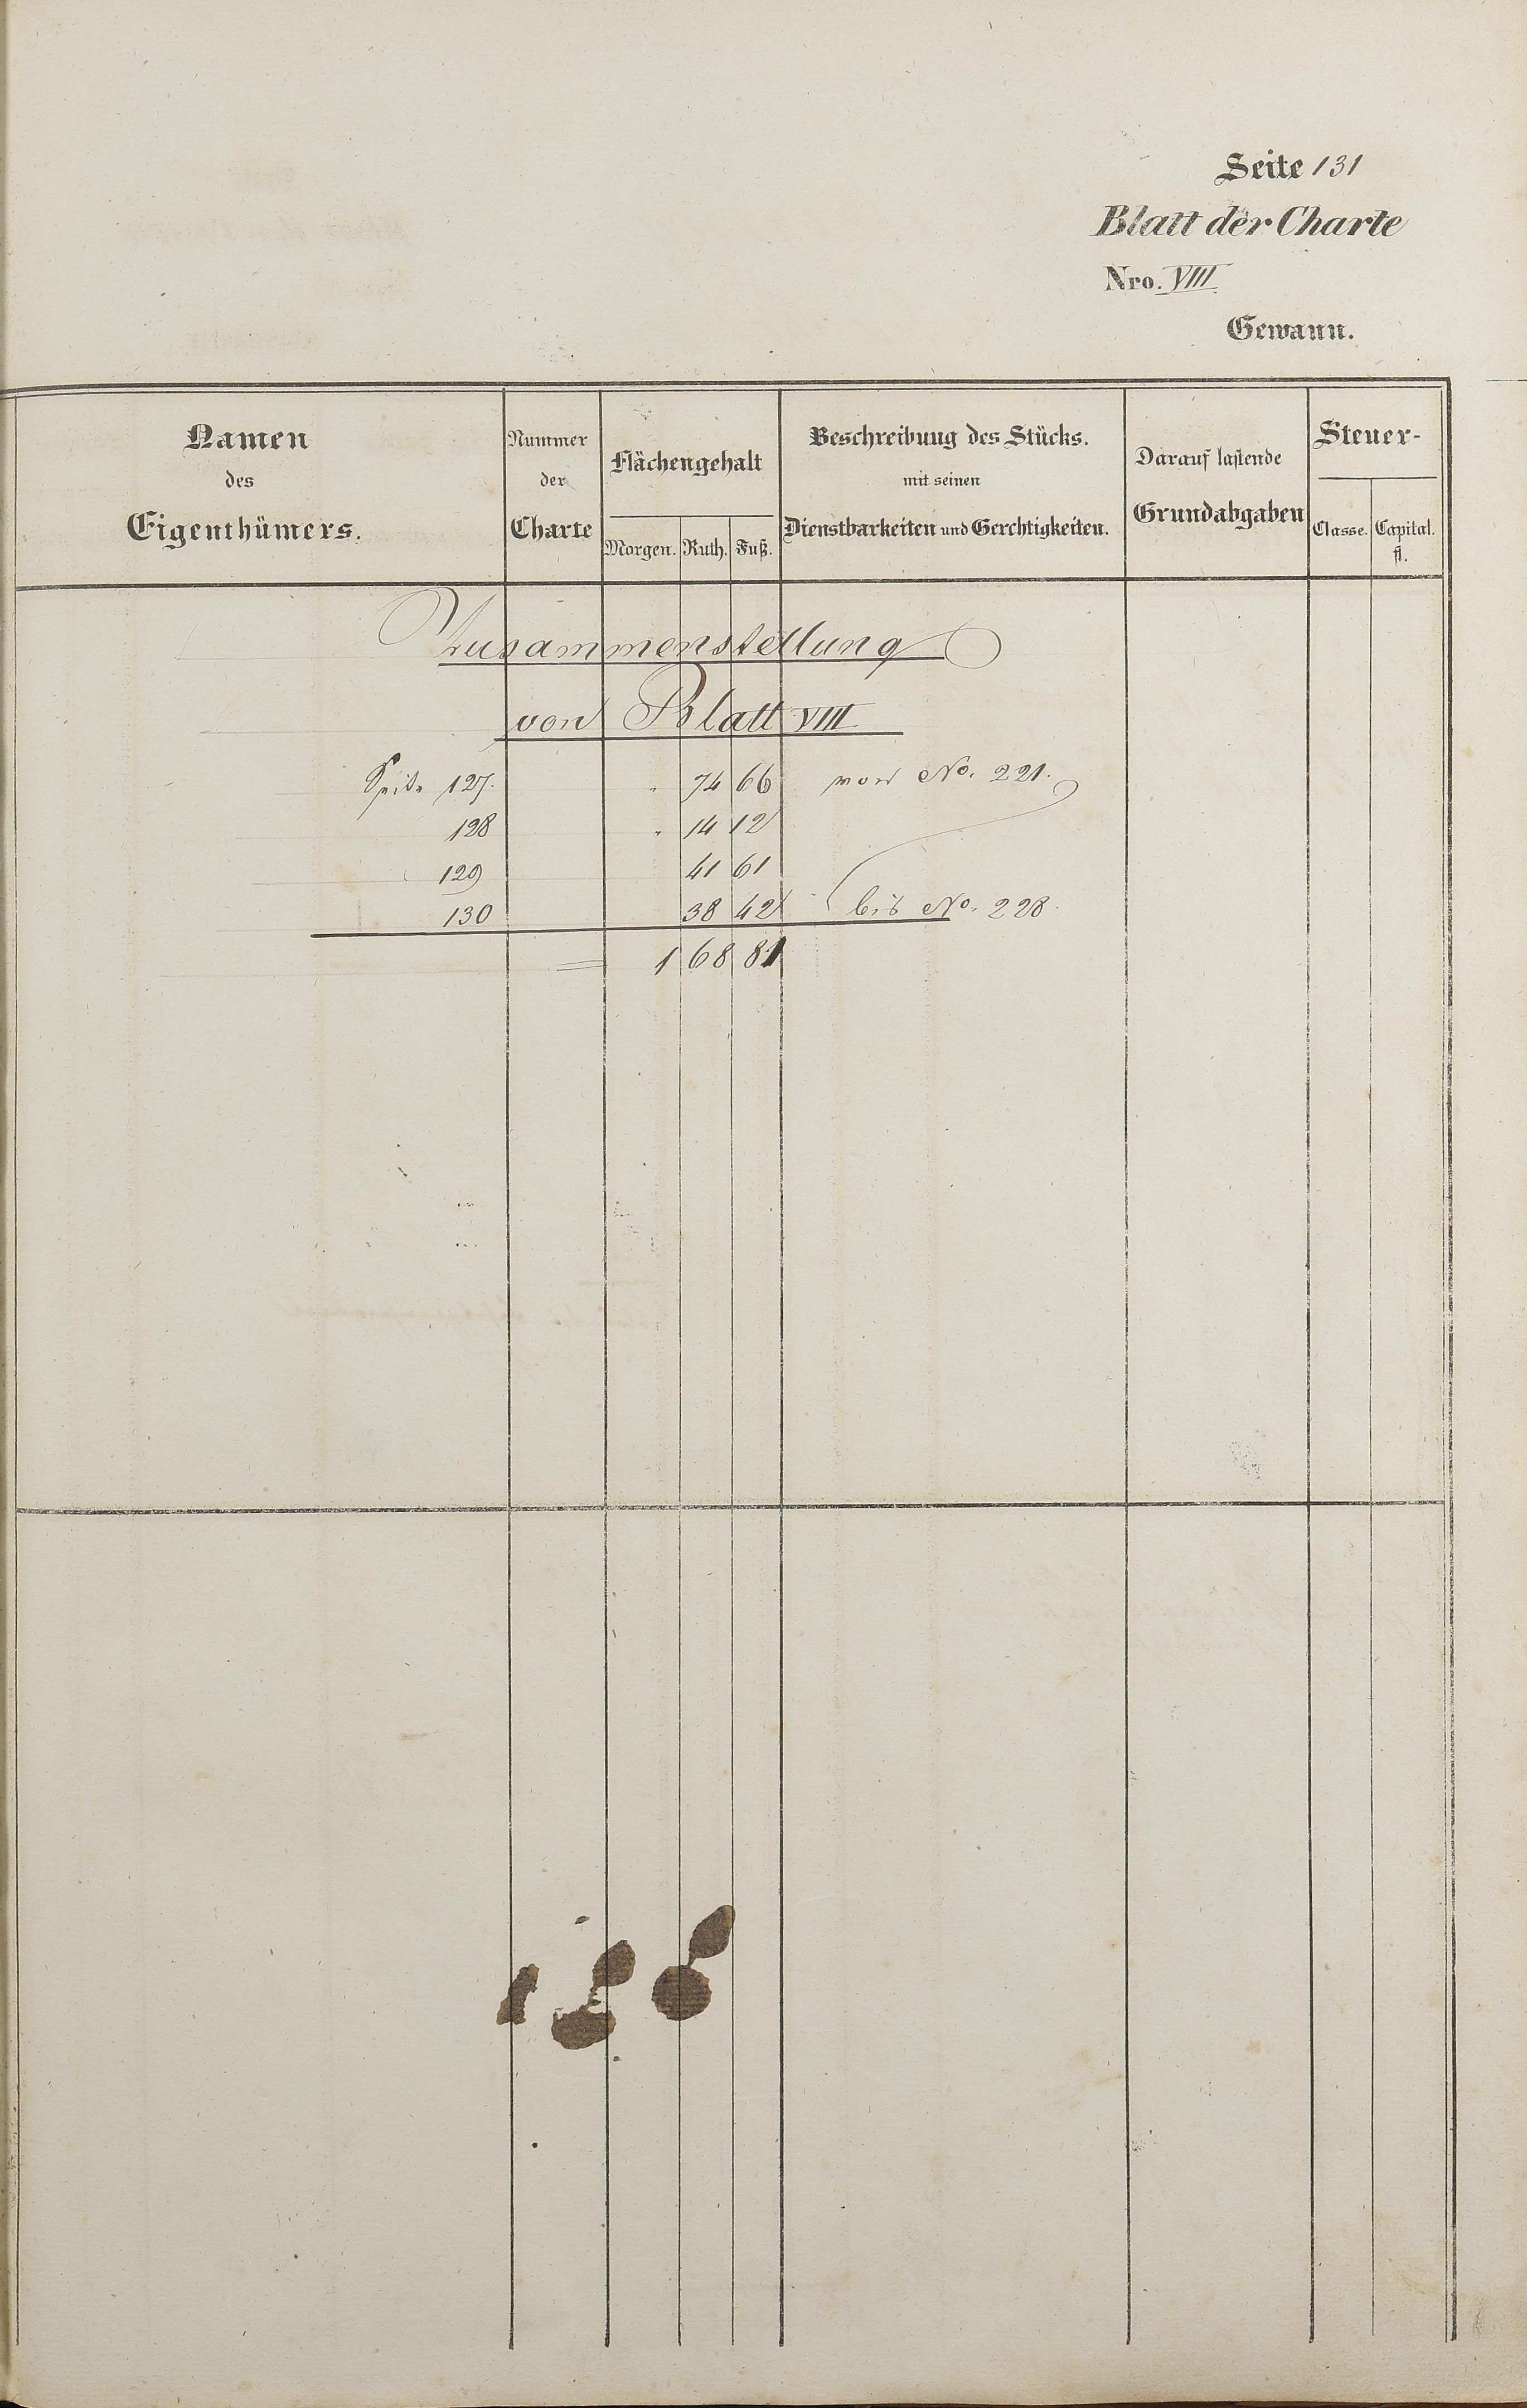 Seite 131
Blatt der Charte
Nro. VIII
Gewann.
Namen des Eigenthümers.
Nummer der Charte
Flächengehalt
Morgen. Ruth. Fuß.
Beschreibung des Stücks. mit seinen Dienstbarkeiten und Gerechtigkeiten.
Darauf lastende Grundabgaben
Steuer-
Classe. Capital. fl.
Zusammenstellung
von Blatt VIII
Seite 127. " 74 66 von No. 221.
128 " 14 12
129 41 61
130 38 42 bis No. 228.
= 1 68 81